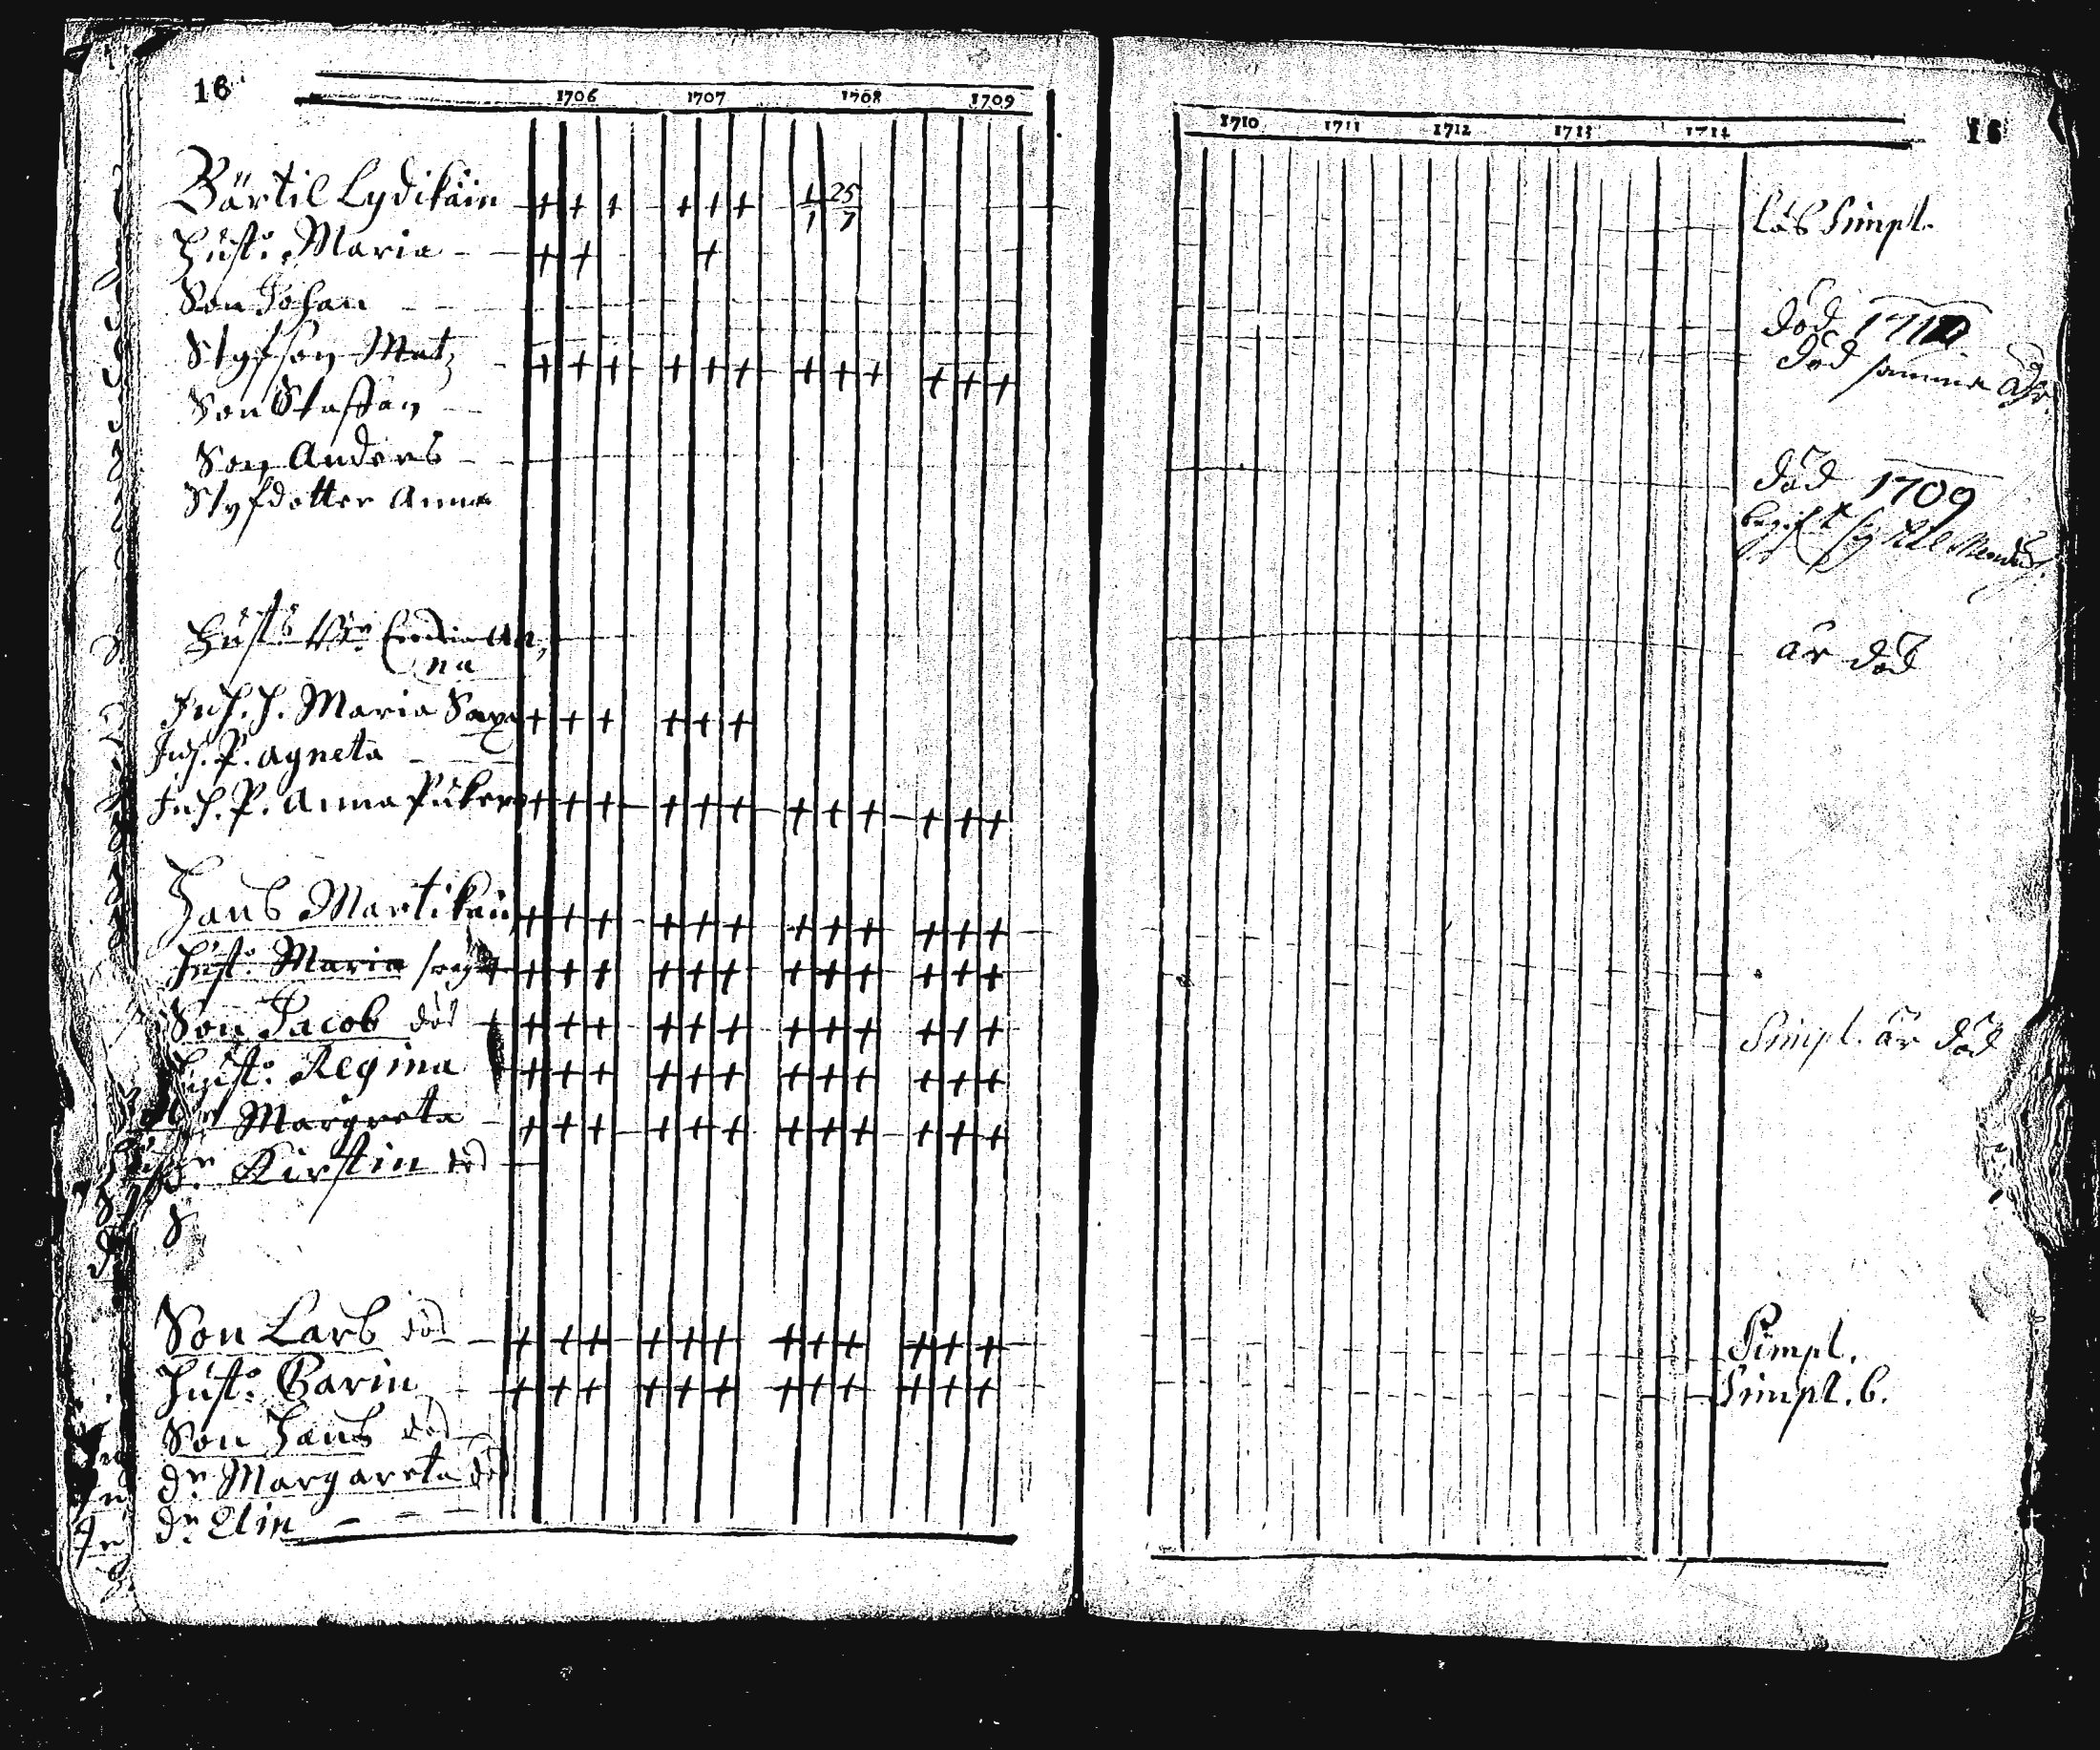 16
1706 1707 1708 1709
Bärtil Lydikäin + + + + + + 1/1 25/7
Hust: Maria + + +
Son Johan
Styfson Matz + + + + + + + + + + + +
Son Staffan
Son Anders
Styfdotter Anna
Hust:
na
Inh. H. Maria Saxa + + + + + +
Inh. P. Agneta
Inh. P. Anna Pukero + + + + + + + + + + + +
Hans Martikain + + + + + + + + + + + +
Hust: Maria + + + + + + + + + + + +
Son Jacob död + + + + + + + + + + + +
Hust: Regina + + + + + + + + + + + +
Margreta + + + + + + + + + + + +
Kirstin död
S
Son Lars död + + + + + + + + + + + +
Hust: Carin + + + + + + + + + + + +
Son Hans död
dr: Margareta död
dr: Elin
1710 1711 1712 1713 1714
16
Läs Simpl.
död
död samma åhr.
död 1709
är död
Simpl. är död
Simpl.
Simpl. b.